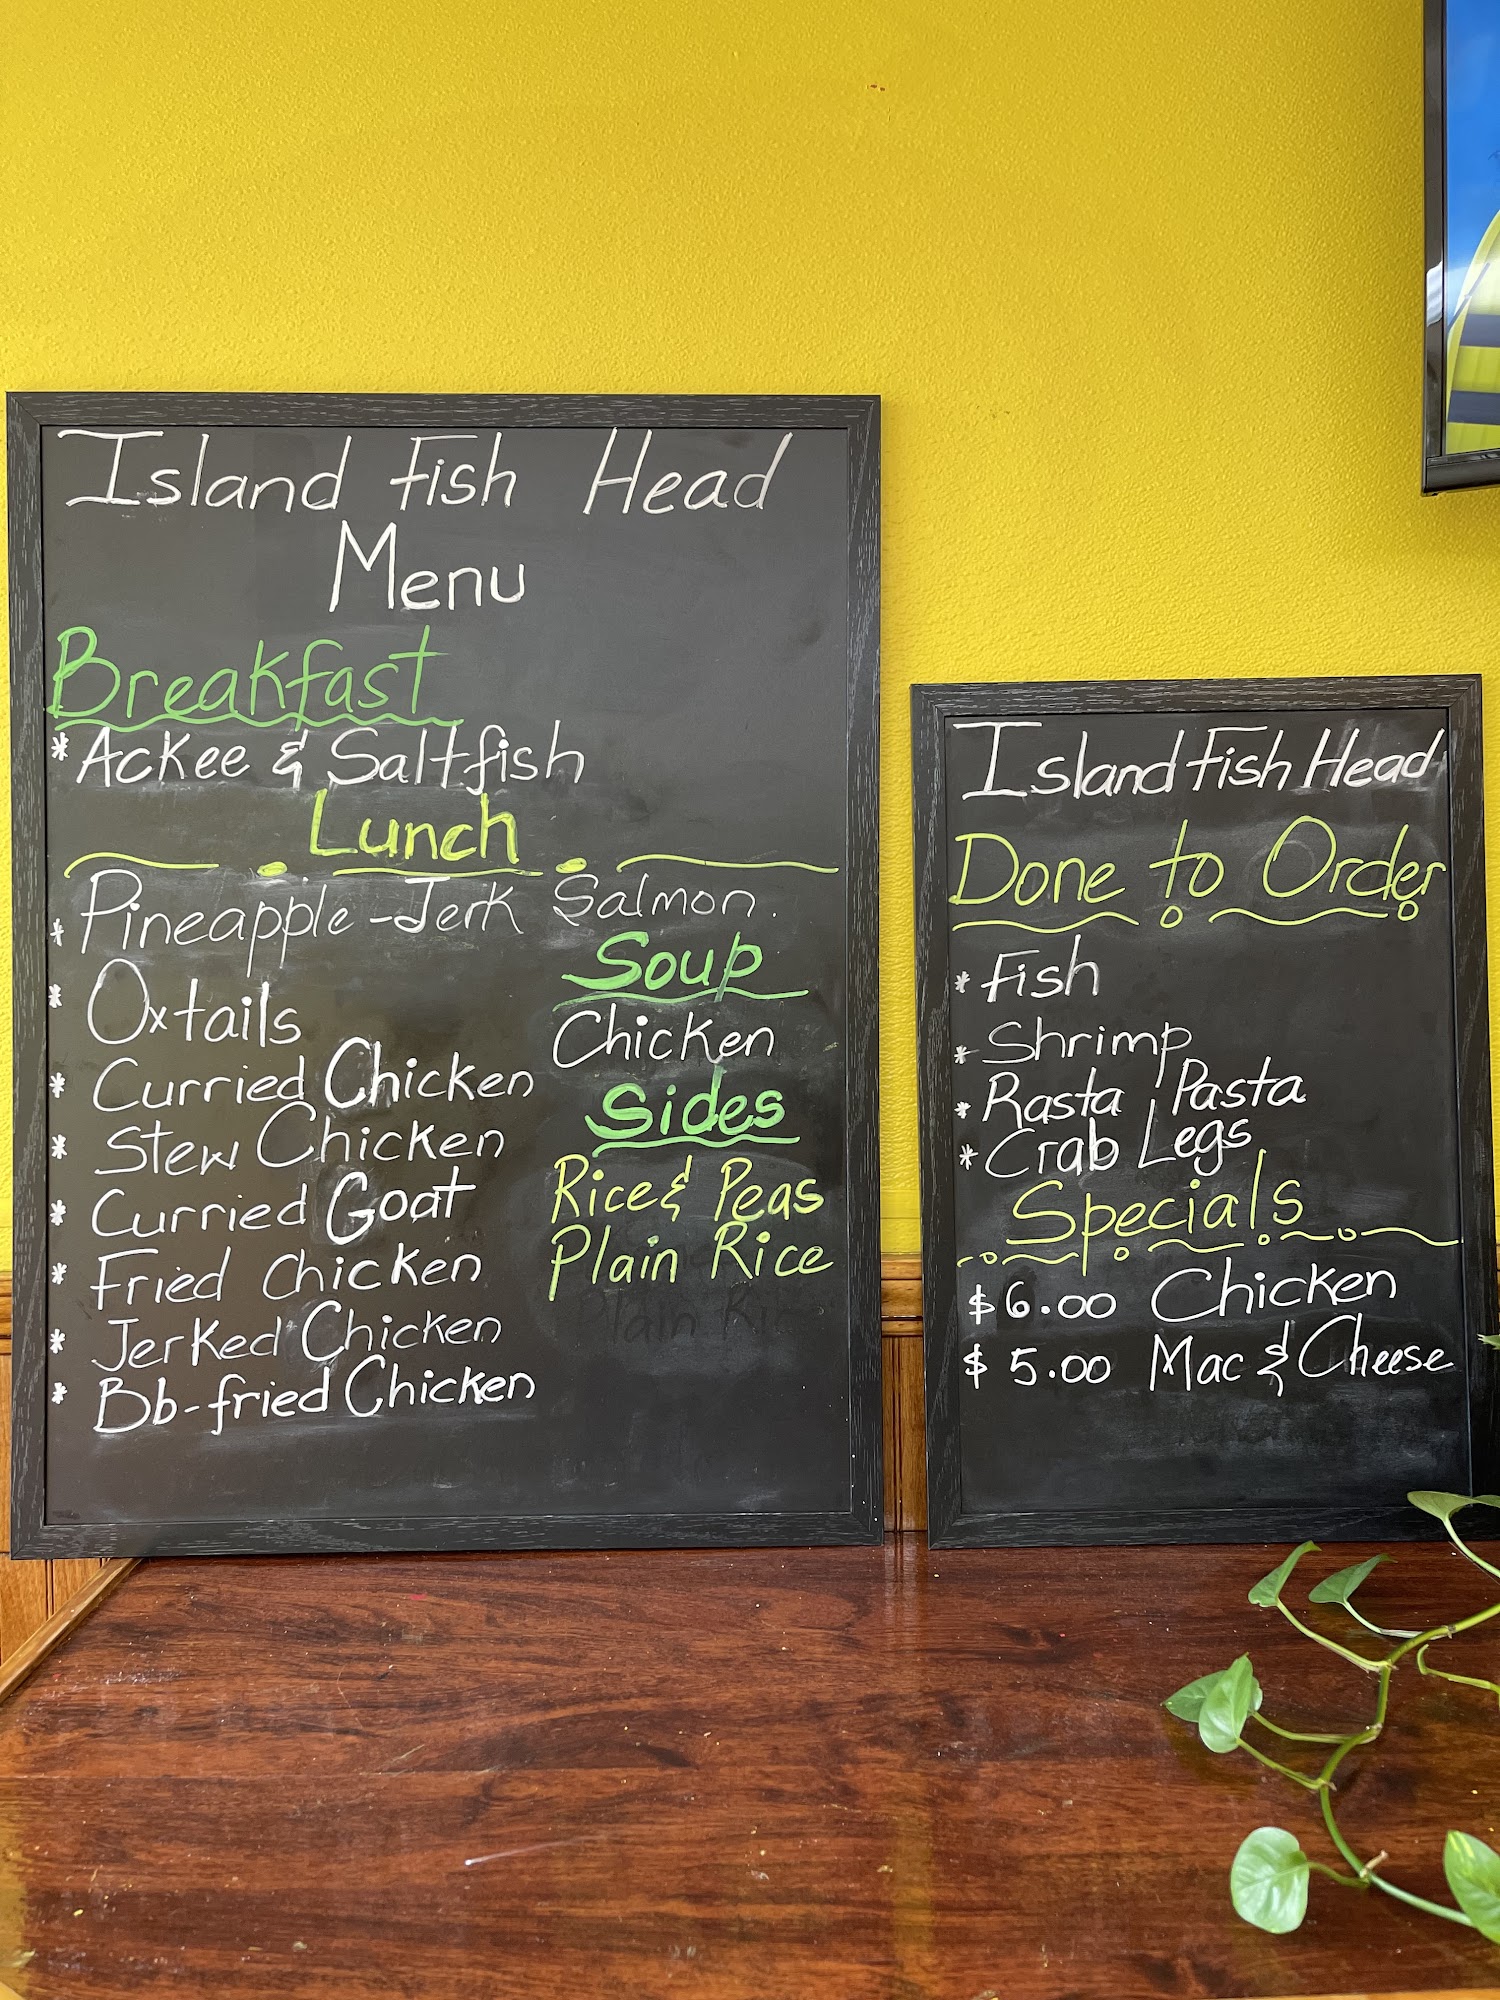 Island Fish Head
Menu
Breakfast
* Ackee & Saltfish
Lunch
* Pineapple-Jerk Salmon.
* Oxtails
* Curried Chicken
* Stew Chicken
* Curried Goat
* Fried Chicken
* Jerked Chicken
* Bb-fried Chicken
Soup
Chicken
Sides
Rice & Peas
Plain Rice
Plain Rice
Island Fish Head
Done to Order
* Fish
* Shrimp
* Rasta Pasta
* Crab Legs
Specials
$6.00 Chicken
$5.00 Mac & Cheese